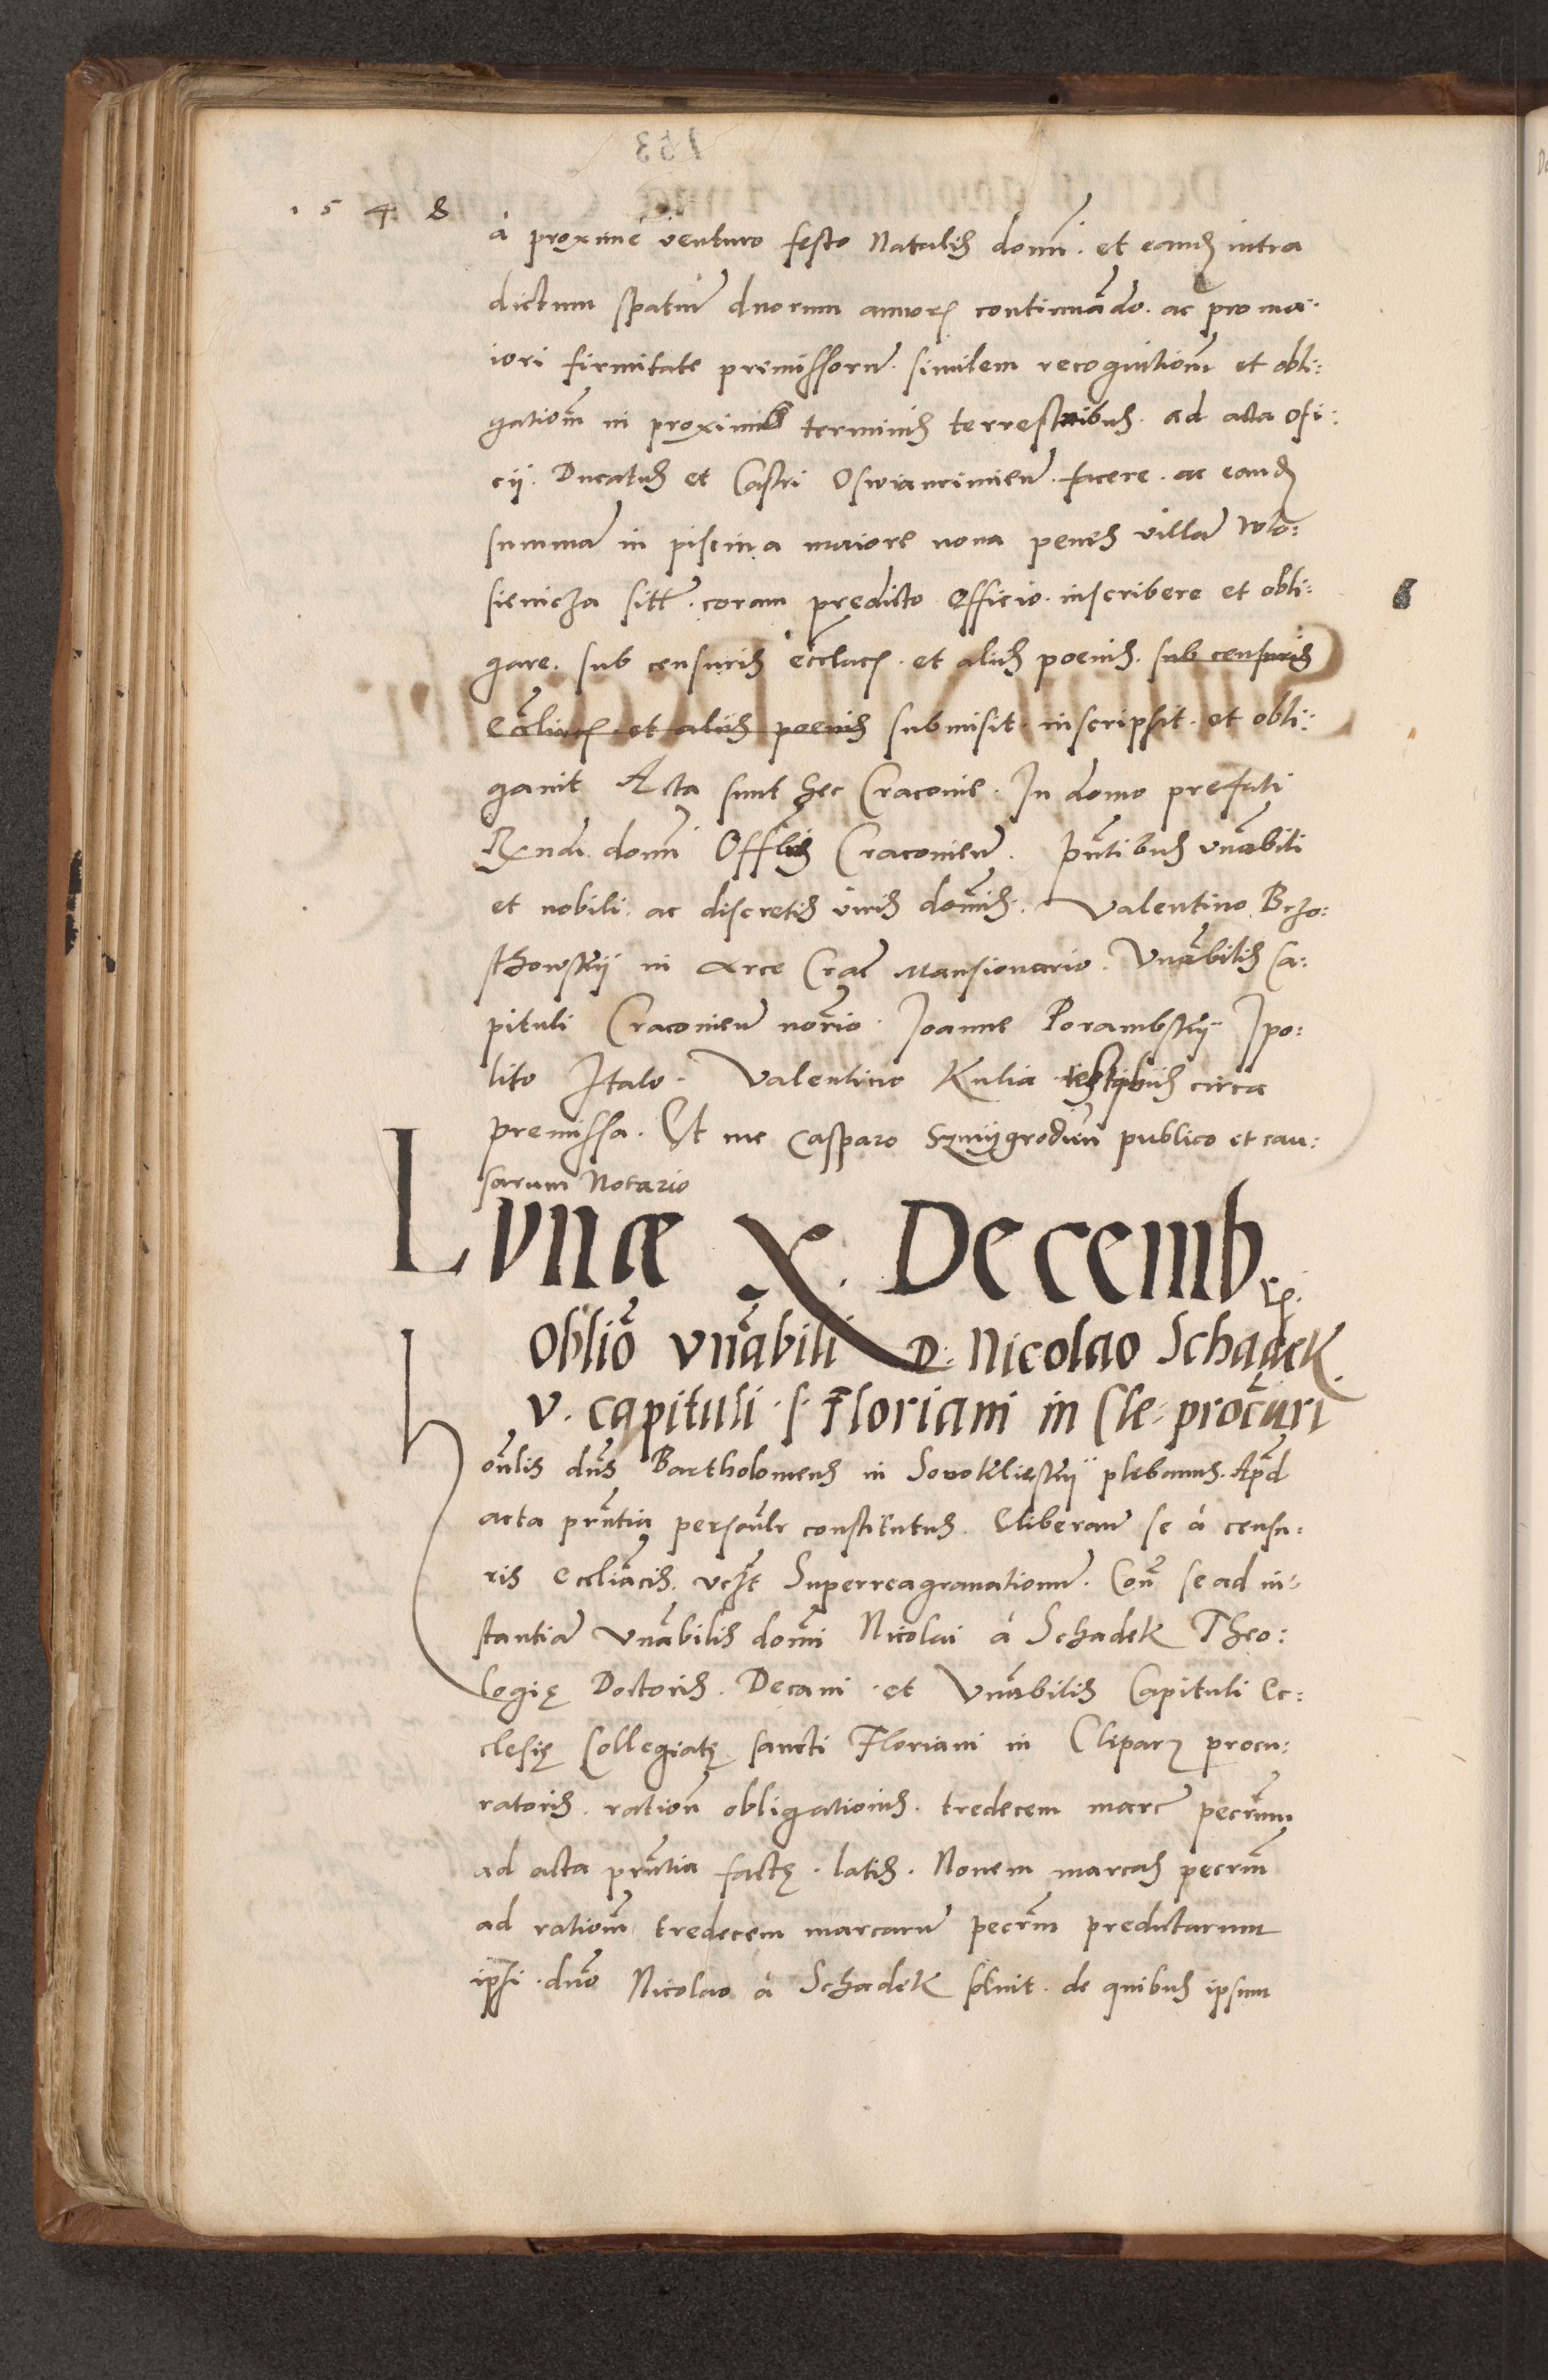 1548
à proxime venturo festo Natalis domi. et eandem intra
dictum spatium duorum annorum continuando. ac pro ma:
iori firmitate premissorum. similem recognitionem et obli:
gationem in proximis terminis terrestribus. ad acta offi:
cii. Ducatus et Castri Oswiancimien. facere. ac eandem
summam in piscina maiore nova penes villam Wlo:
sienicza sitt. coram predicto Officio. inscribere et obli:
gare. sub censuris ecclacis. et aliis poenis. sub censuris
Eccliacis. et aliis poenis submisit. inscripsit. et obli:
gavit Acta sunt hec Cracovie. In domo prefati
Rndi. domi Offlis Cracovien. pntibus vnabili
et nobili. ac discretis viris dominis. Valentino Brzo:
sthowskij in arce Crac Mansionario. Vnabilis Ca:
pituli Cracovien norio. Joanne Porambskij Ipo:
lito Italo. Valentino Kulia testibus circa
premissa. Et me Casparo Szmijgrodien publico et cau:
sarum Notario
Lunæ X. Decembr.
Oblio vnabili D. Nicolao Schadek.
v. capituli. s. Floriani in Cle. procuri
honlis dns Bartholomeus in Sorokliestij plebanus. Apd
acta pntia personlr constitutus. Eliberan se à censu:
ris eccliacis. vczt Superreagravationum. Con se ad in:
stantiam Vnabilis domi Nicolai à Schadek Theo:
logię Doctoris. Decani. et Vnabilis Capituli Ec:
clesię Collegiatę sancti Floriani in Clipar procu:
ratoris. ration obligationis. tredecem marc pecrum
ad acta pntia factę. latis. Novem marcas pecrm
ad rationem tredecem marcarum pecrm predictarum
ipsi. dno Nicolao à Schadek solvit. de quibus ipsum